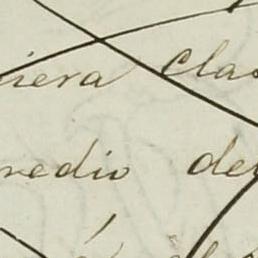 iera clas
redio de